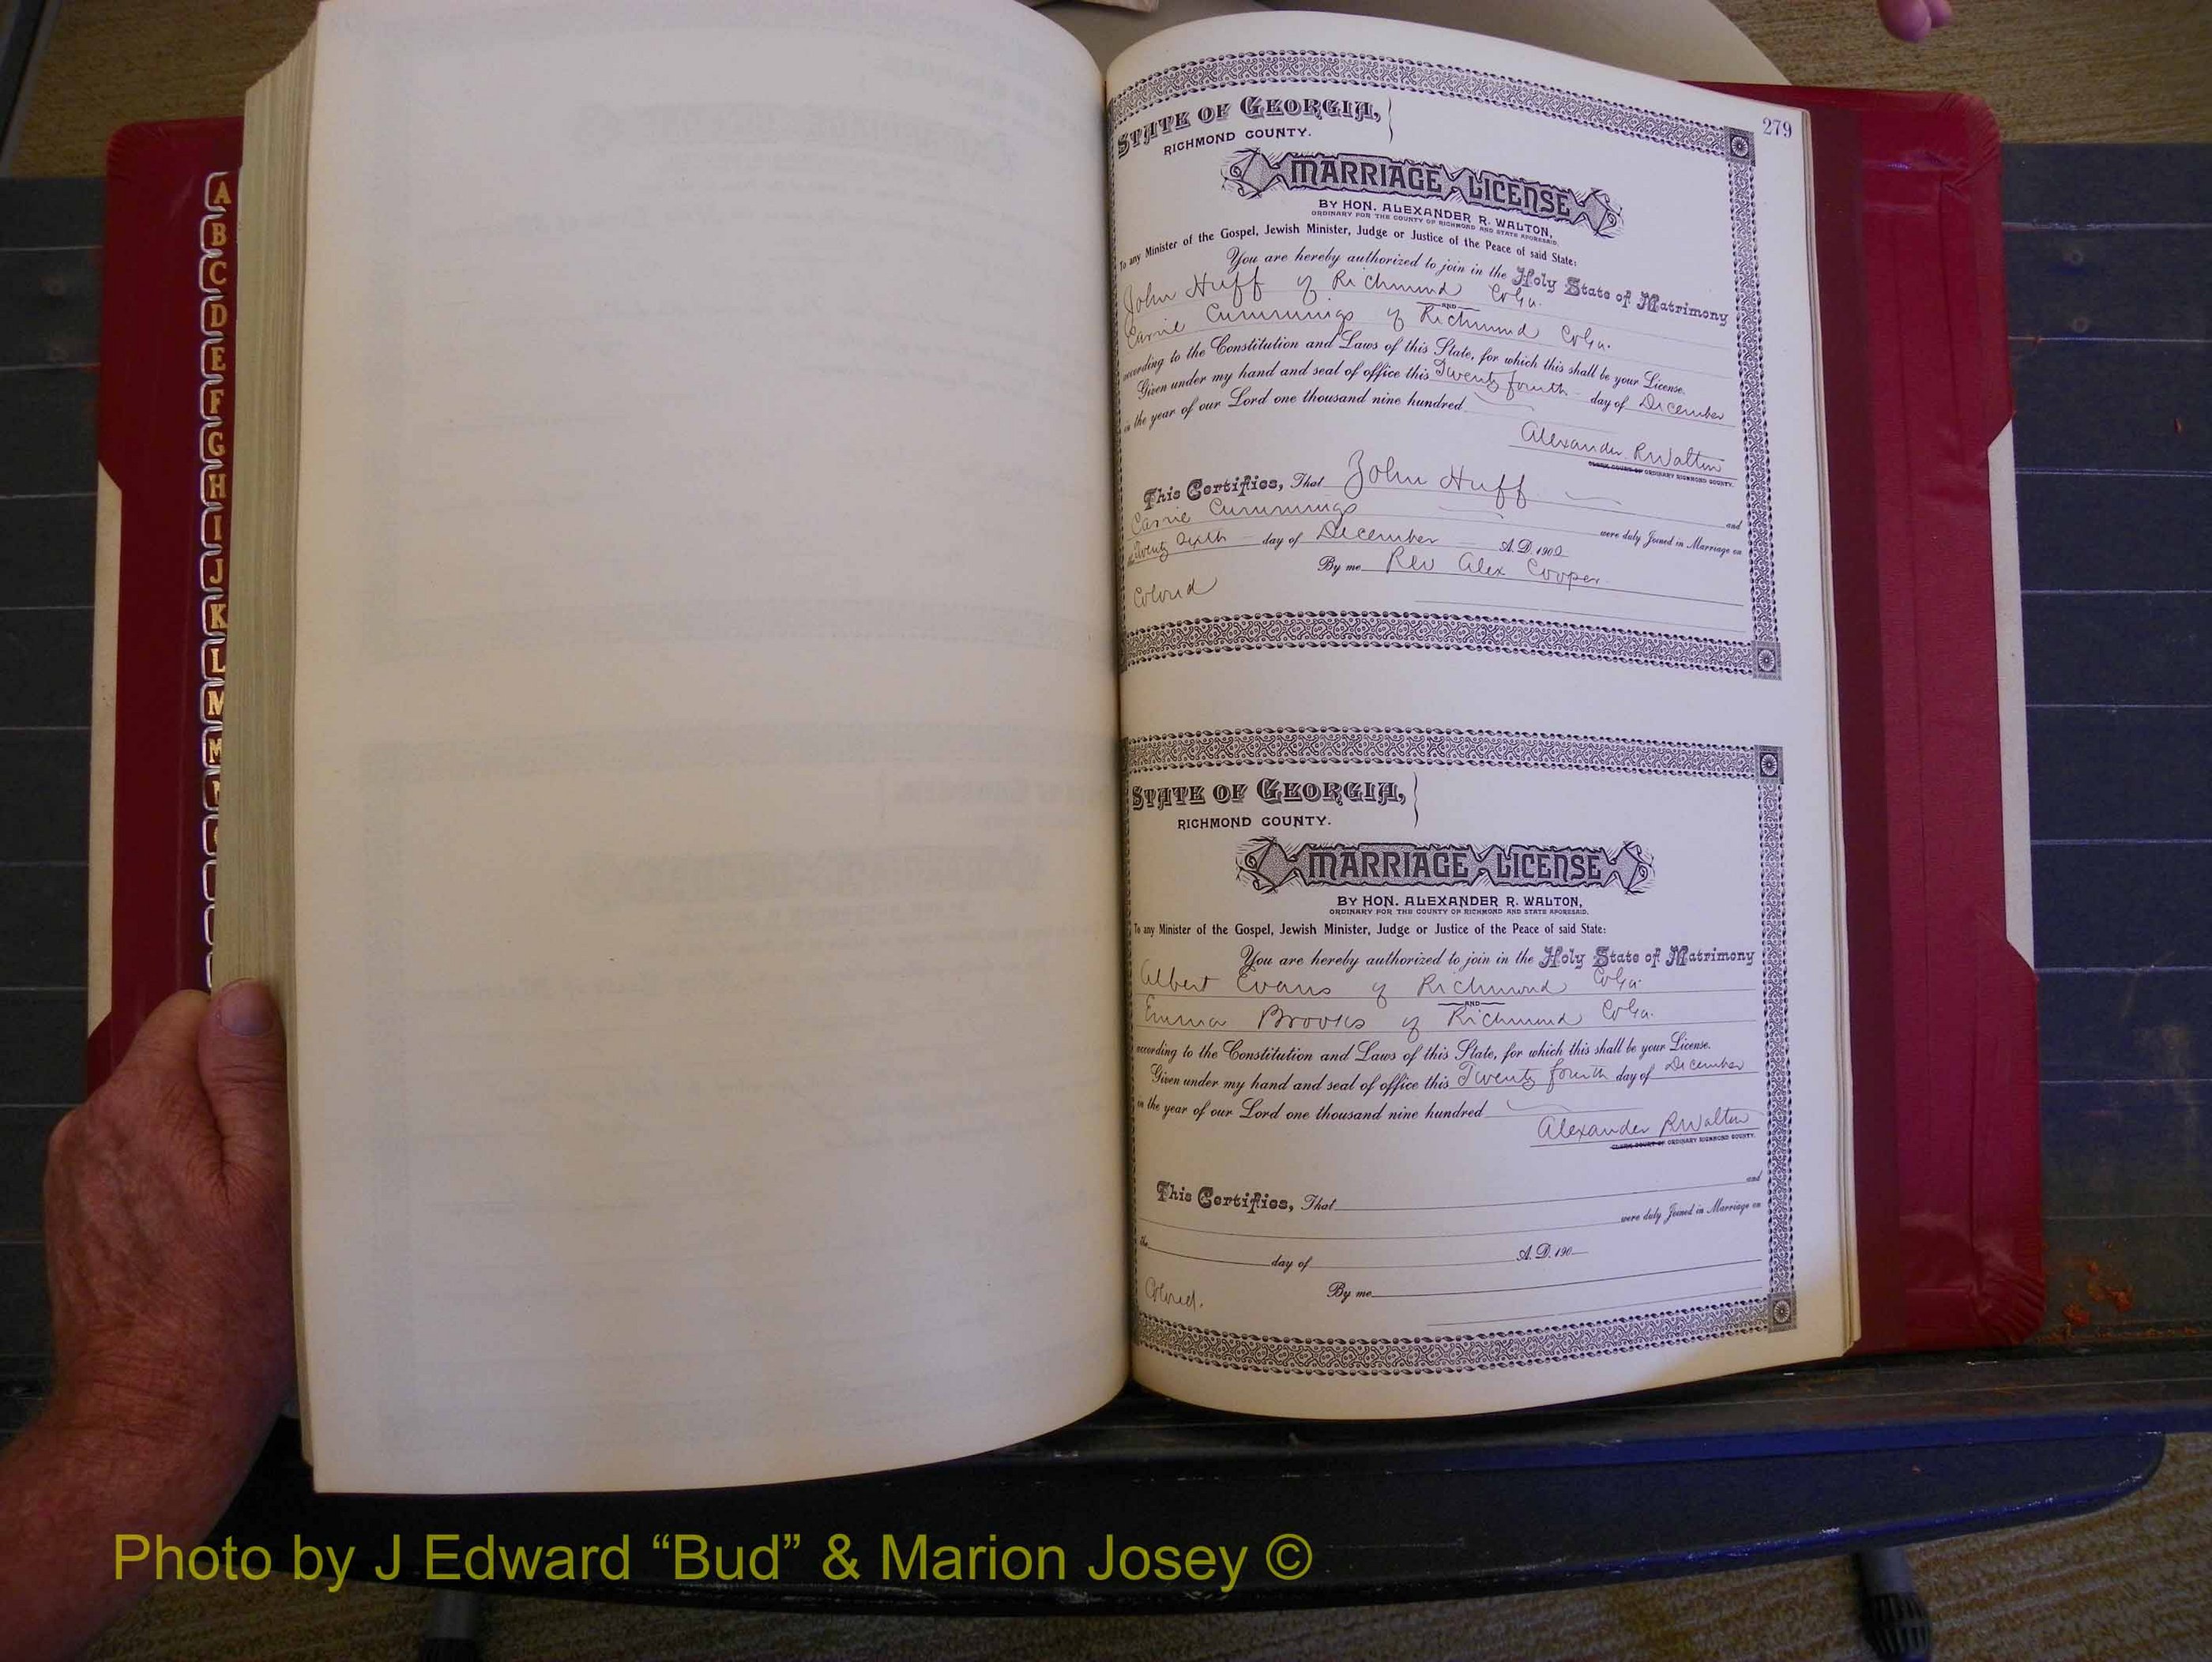 A
B
C
D
E
F
G
H
I
J
K
L
M
279
STATE OF GEORGIA,
RICHMOND COUNTY.
MARRIAGE LICENSE
BY HON. ALEXANDER R. WALTON,
ORDINARY FOR THE COUNTY OF RICHMOND AND STATE AFORESAID.
To any Minister of the Gospel, Jewish Minister, Judge or Justice of the Peace of said State:
You are hereby authorized to join in the Holy State of Matrimony
John Huff of Richmond Co Ga.
AND
Carrie Cummings of Richmond Co Ga.
according to the Constitution and Laws of this State, for which this shall be your License.
Given under my hand and seal of office this Twenty fourth day of December
in the year of our Lord one thousand nine hundred
Alexander R Walton
CLERK COURT OF ORDINARY RICHMOND COUNTY.
This Certifies, That John Huff and
Carrie Cummings were duly Joined in Marriage on
the Twenty Sixth day of December A. D. 1900
By me Rev Alex Cooper
Colored
STATE OF GEORGIA,
RICHMOND COUNTY.
MARRIAGE LICENSE
BY HON. ALEXANDER R. WALTON,
ORDINARY FOR THE COUNTY OF RICHMOND AND STATE AFORESAID.
To any Minister of the Gospel, Jewish Minister, Judge or Justice of the Peace of said State:
You are hereby authorized to join in the Holy State of Matrimony
Albert Evans of Richmond Co Ga.
AND
Emma Brooks of Richmond Co Ga.
according to the Constitution and Laws of this State, for which this shall be your License.
Given under my hand and seal of office this Twenty fourth day of December
in the year of our Lord one thousand nine hundred
Alexander R Walton
CLERK COURT OF ORDINARY RICHMOND COUNTY.
This Certifies, That and
were duly Joined in Marriage on
the day of A. D. 190
By me
Colored.
Photo by J Edward “Bud” & Marion Josey ©